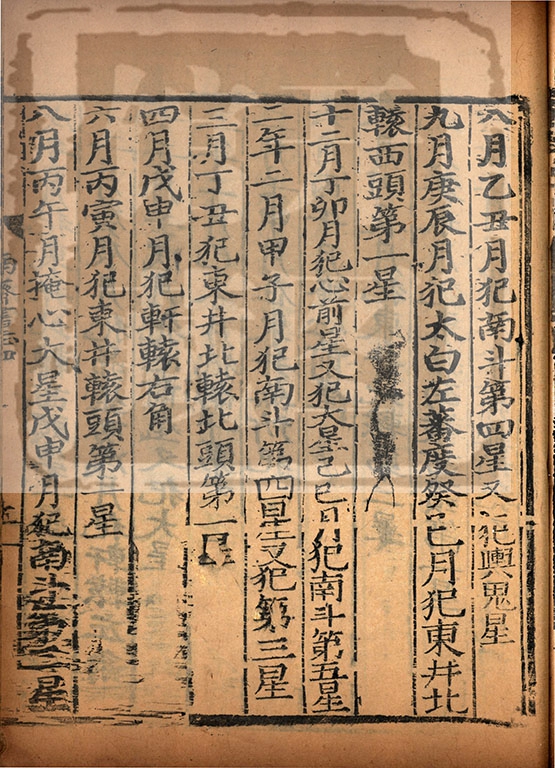 八月乙丑月犯南斗第四星又犯輿鬼星
九月庚辰月犯太白左蕃度癸巳月犯東井北
轅西頭第一星
十二月丁卯月犯心前星又犯大星己巳月犯南斗第五星
二年二月甲子月犯南斗第四星又犯第三星
三月丁丑犯東井北轅北頭第一星
四月戊申月犯軒轅右角
六月丙寅月犯東井轅頭第一星
八月丙午月掩心大星戊申月犯南斗第一星